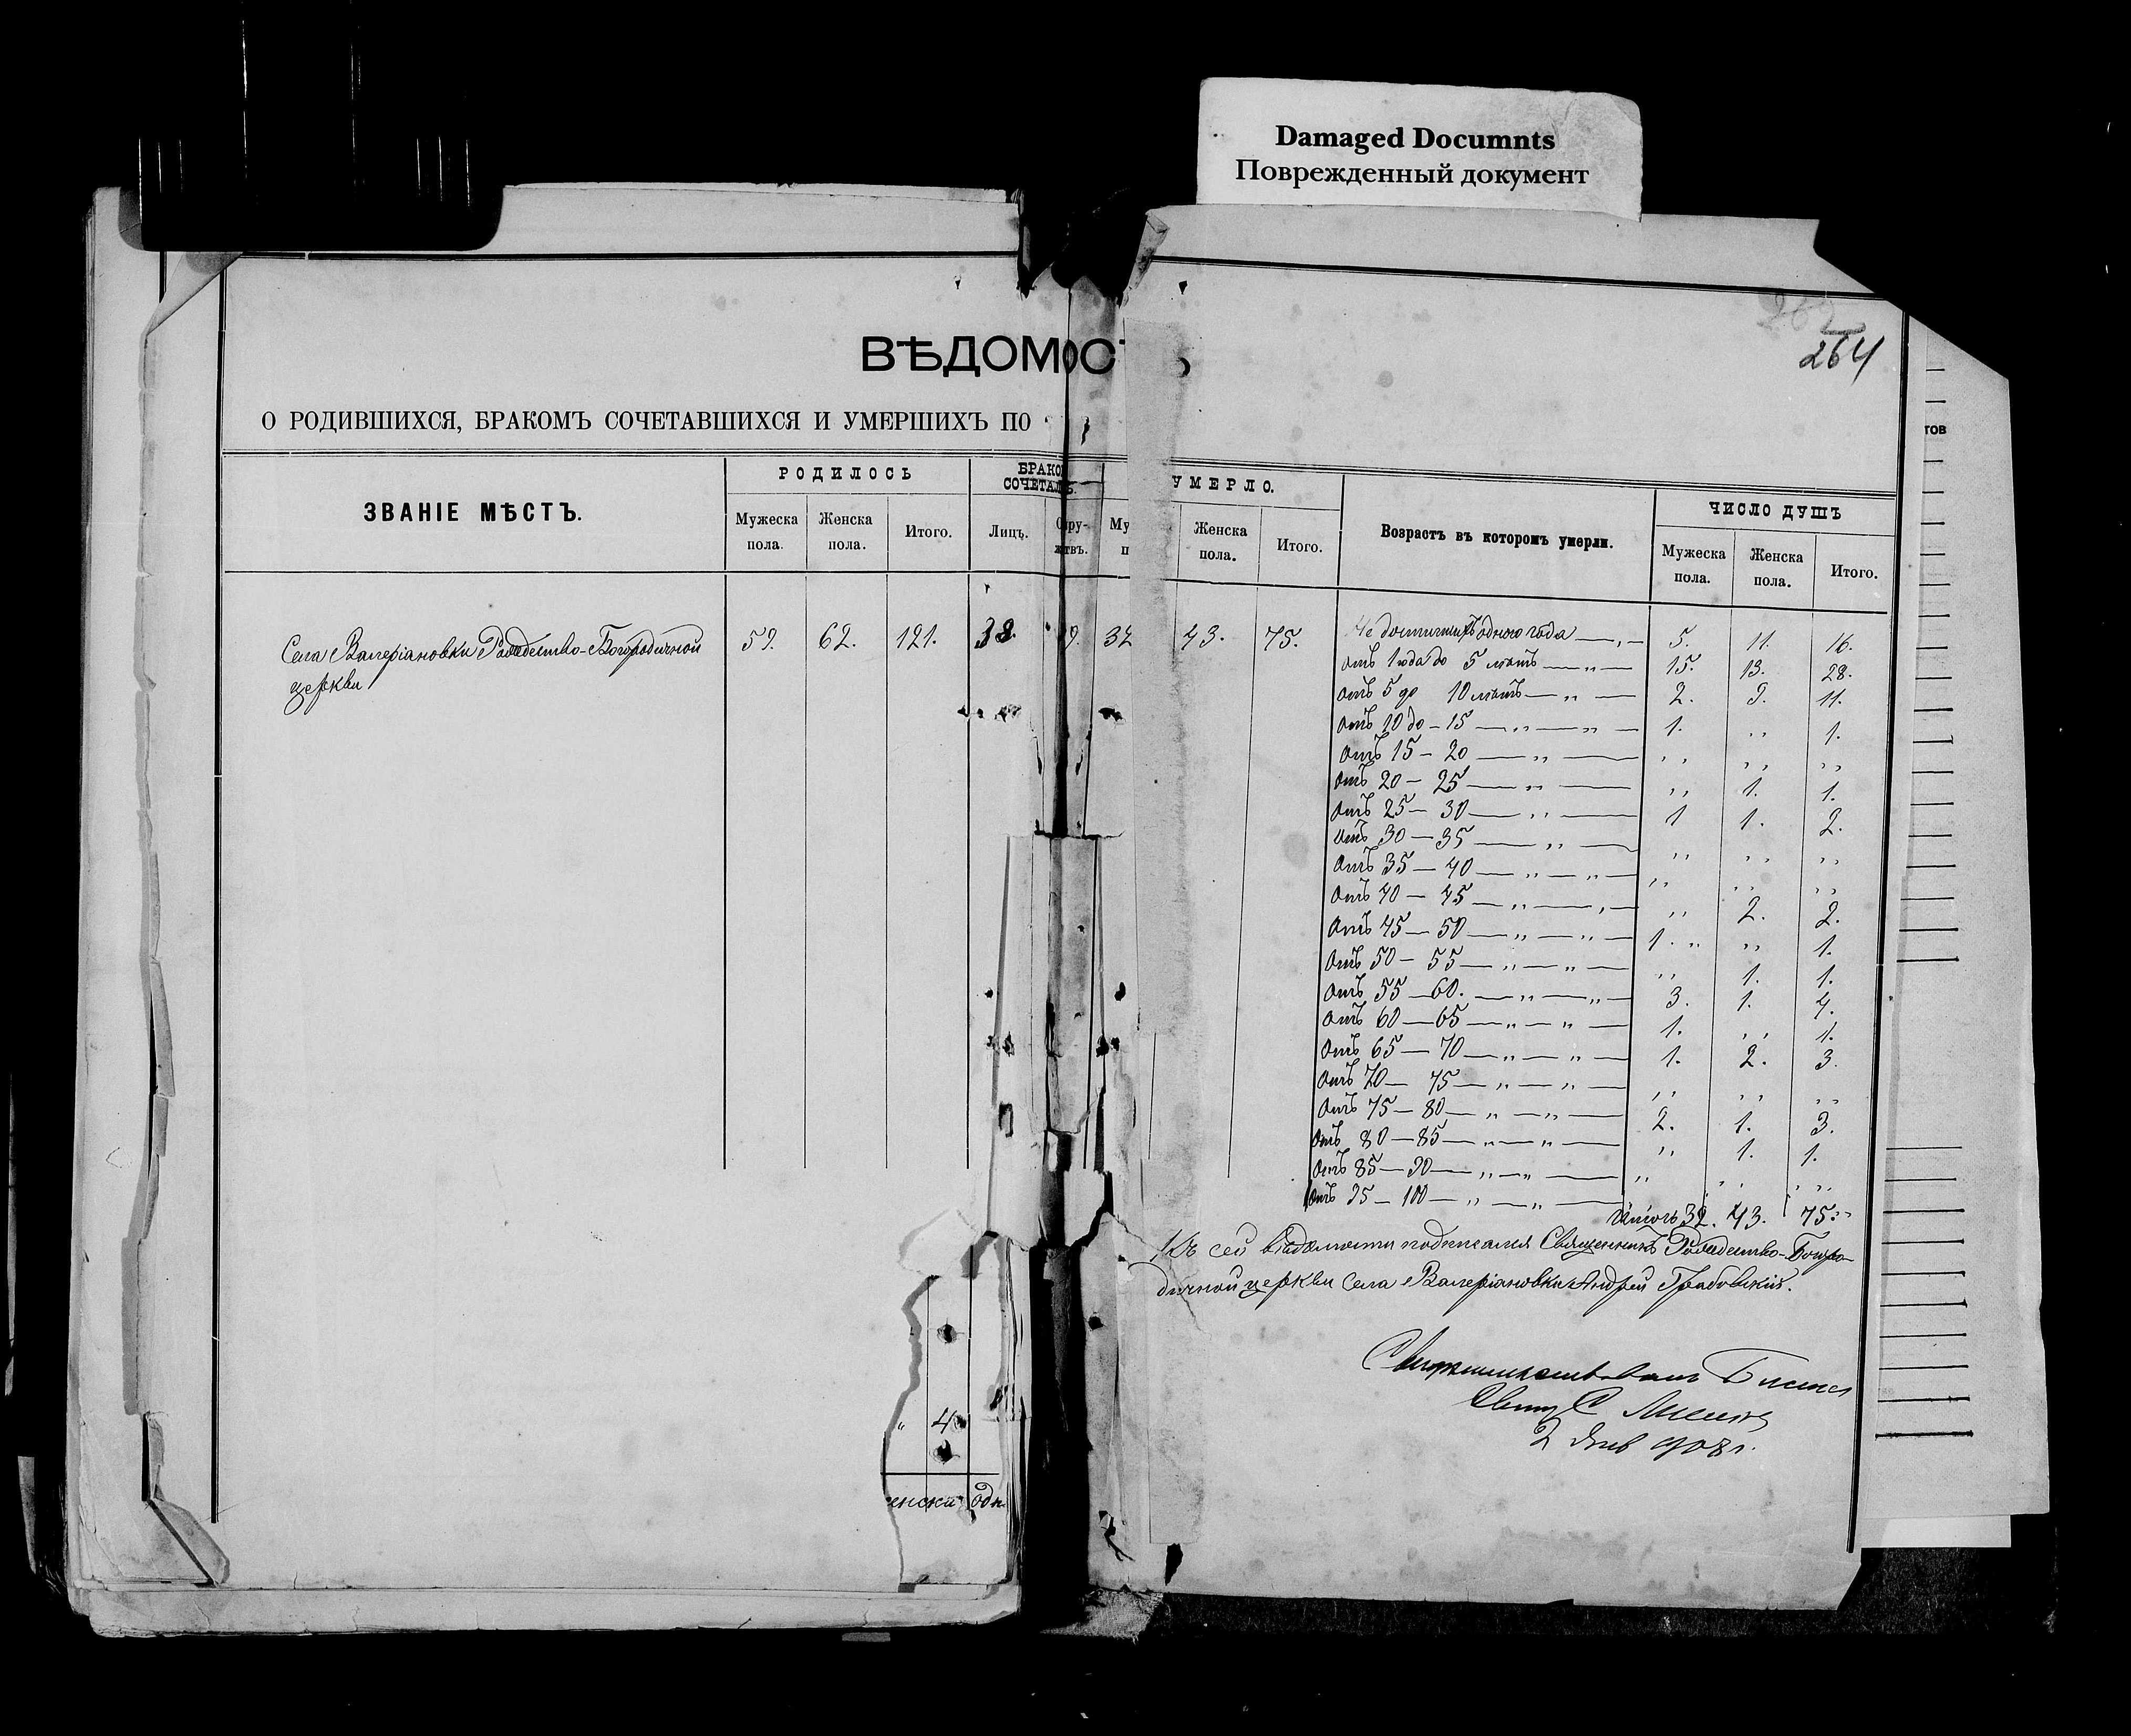 Damaged Documnts
Поврежденный документ
264
ВѢДОМОСТЬ
О РОДИВШИХСЯ, БРАКОМЪ СОЧЕТАВШИХСЯ И УМЕРШИХЪ ПО
ЗВАНІЕ МѢСТЪ.
РОДИЛОСЬ
БРАКО
СОЧЕТАЛ
УМЕРЛО.
Возрастъ въ которомъ умерли.
ЧИСЛО ДУШЪ
Мужеска пола.
Женска пола.
Итого.
Лицъ.
Му
Женска пола.
Итого.
Мужеска пола.
Женска пола.
Итого.
тов
Села Валеріановки Рождество-Богородичной 59. 62. 121. 38. 9. 32 43. 75.
церкви
Не достигшихъ одного года — „ — 5. 11. 16.
Отъ 1 года до 5 лѣтъ — „ — 15. 13. 28.
Отъ 5 до 10 лѣтъ — „ — 2. 9. 11.
Отъ 10 до — 15 — „ — „ — 1. „ 1.
Отъ 15 — 20 — „ — „ „ „
Отъ 20 — 25 — „ — „ 1. 1.
Отъ 25 — 30 — „ — 1 1. 2.
Отъ 30 — 35 — „ — „ „ „
Отъ 35 — 40 — „ — „ — „ „ „
Отъ 40 — 45 — „ — „ — „ 2. 2.
Отъ 45 — 50 — „ — „ — 1. „ „ 1.
Отъ 50 — 55 — „ — „ — „ 1. 1.
Отъ 55 — 60. — „ — „ — 3. 1. 4.
Отъ 60 — 65 — „ — „ — 1. „ 1.
Отъ 65 — 70 — „ — „ — 1. 2. 3.
Отъ 70 — 75 — „ — „ — „ „ „
Отъ 75 — 80 — „ — „ — 2. 1. 3.
Отъ 80 — 85 — „ — „ — „ 1. 1.
Отъ 85 — 90 — „ — „ — „ „ „
Отъ 95 — 100 — „ — „ —
Итого 32. 43. 75.
Къ сей вѣдомости подписался Священникъ Рождество-Богоро-
дичной церкви Села Валеріановки Андрей Грабовскій.
Свидѣтельствовалъ
Свящ С
2 Янв 908 г.
„ 4
енски одн